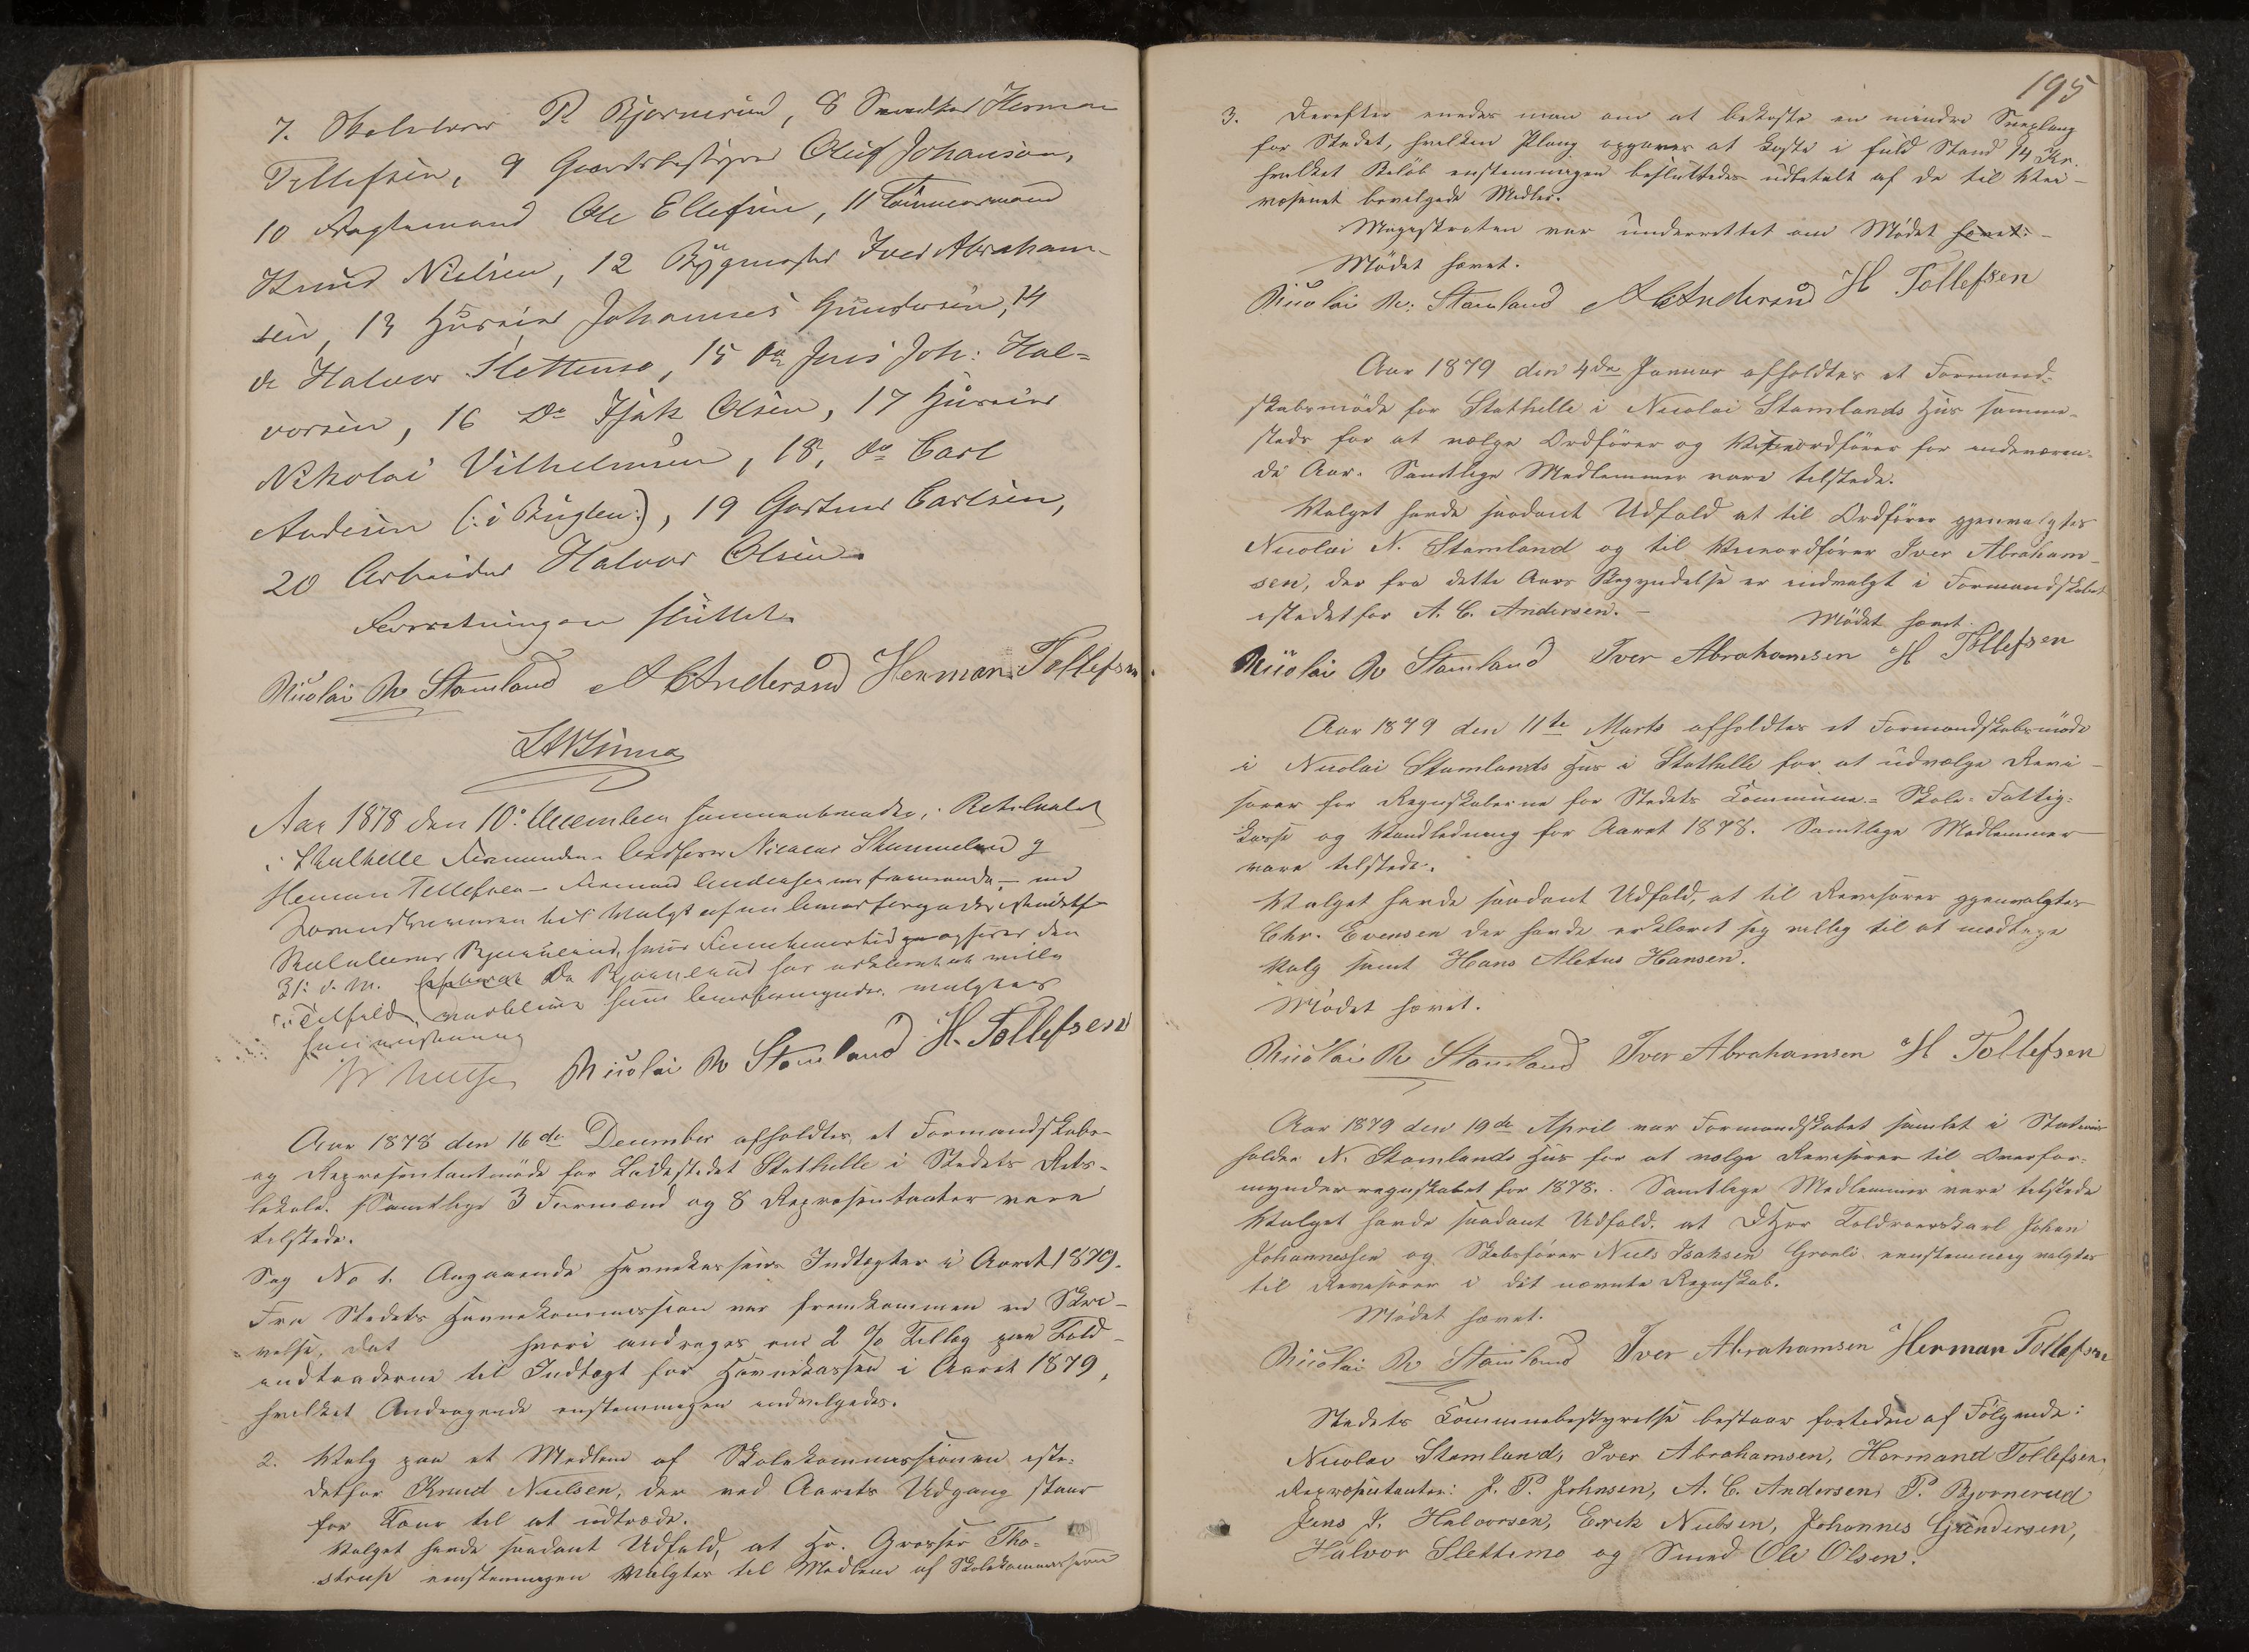 7. Skolelærer P. Bjørnerud, 8 Snedker Herman
Tellefsen, 9 Gaardsbestyrer Oluf Johanson,
10 Fragtemand Ole Ellefsen, 11 Tømmermand
Knud Nielsen, 12 Bygmester Iver Abraham-
sen, 13 Huseier Johannes Gundersen, 14
do Halvor Slettemo, 15 do Jens Joh: Hal-
vorsen, 16 Do Isak Olsen, 17 Huseier
Nikolai Vilhelmsen, 18, do Carl
Andersen (: i :), 19 Gartner Carlsen,
20 Arbeider Halvor Olsen.
Forretningen sluttet.
Nicolai N. Stamland A C Andersen Herman Tollefsen
Aar 1878 den 10de December i Retslocalet
i Stathelle Formændene Ordfører Nicolai Stammeland og
Herman Tellefsen — Formand Andersen var fraværende — med
Skolelærer Bjørnerud, hvis Functionstid ophører den
31. d. M. Da Bjørnerud har erklæret at ville
Nicolai N. Stamland H. Tollefsen
Aar 1878 den 16de December afholdtes et Formandskabs-
og Repræsentantmøde for Ladestedet Stathelle i Stedets Rets-
lokale. Samtlige 3 Formænd og 8 Repræsentanter vare
tilstede.
Sag No 1. Angaaende Havnekassens Indtægter i Aaret 1879.
Fra Stedets Havnekommission var fremkommen en Skri-
velse, dat hvori andrages om 2 % Tillæg paa Told-
indtraderne til Indtægt for Havnekassen i Aaret 1879,
hvilket Andragende enstemmigen indvilgedes.
2. Valg paa et Medlem af Skolekommissionen iste-
detfor Knud Nielsen, der ved Aarets Udgang staar
for Tour til at udtræde.
Valget havde saadant Udfald, at Hr. Grosser Tho-
strup enstemmigen valgtes til Medlem af Skolekommissionen
195
3. Derefter enedes man om at bekoste en mindre Sneploug
for Stedet, hvilken Ploug opgaves at koste i fuld Stand 14 Kr.
hvilket Beløb enstemmigen besluttedes udbetalt af de til Vei-
væsenet bevilgede Midler.
Magistraten var underrettet om Mødet hævet. –
Mødet hævet.
Nicolai N. Stamland A C Andersen H Tollefsen
Aar 1879 den 4de Januar afholdtes et Formand-
skabsmøde for Stathelle i Nicolai Stamlands Hus samme-
steds for at vælge Ordfører og Viceordfører for indeværen-
de Aar. Samtlige Medlemmer vare tilstede.
Valget havde saadant Udfald at til Ordfører gjenvalgtes
Nicolai N. Stamland og til Viceordfører Iver Abraham-
sen, der fra dette Aars Begyndelse er indvalgt i Formandskabet
istedetfor A. C. Andersen. –
Mødet hævet.
Nicolai N Stamland Iver Abrahamsen H Tollefsen
Aar 1879 den 11te Marts afholdtes et Formandskabsmøde
i Nicolai Stamlands Hus i Stathelle for at udvælge Revi-
sorer for Regnskaberne for Stedets Kommune- Skole- Fattig-
kasse og Vandledning for Aaret 1878. Samtlige Medlemmer
vare tilstede.
Valget havde saadant Udfald, at til Revisorer gjenvalgtes
Chr. Evensen der havde erklæret sig villig til at modtage
Valg samt Hans Aletus Hansen.
Mødet hævet.
Nicolai N Stamland Iver Abrahamsen H Tollefsen
Aar 1879 den 19de April var Formandskabet samlet i
holder N. Stamlands Hus for at vælge Revisorer til Overfor-
mynderregnskabet for 1878. Samtlige Medlemmer vare tilstede
Valget havde saadant Udfald, at DHrr Toldroerskarl Johan
Johannessen og Skibsfører Niels Isaksen Graali eenstemmig valgtes
til Revisorer i det nævnte Regnskab.
Mødet hævet.
Nicolai N Stamland Iver Abrahamsen Herman Tollefsen
Stedets Kommunebestyrelse bestaar fortiden af Følgende:
Nicolai Stamland, Iver Abrahamsen, Hermand Tollefsen.
Repræsentanter: J. P. Johnsen, A. C. Andersen, P. Bjørnerud
Jens J. Halvorsen, Erik Nielsen, Johannes Gundersen,
Halvor Slettemo og Smed Ole Olsen.